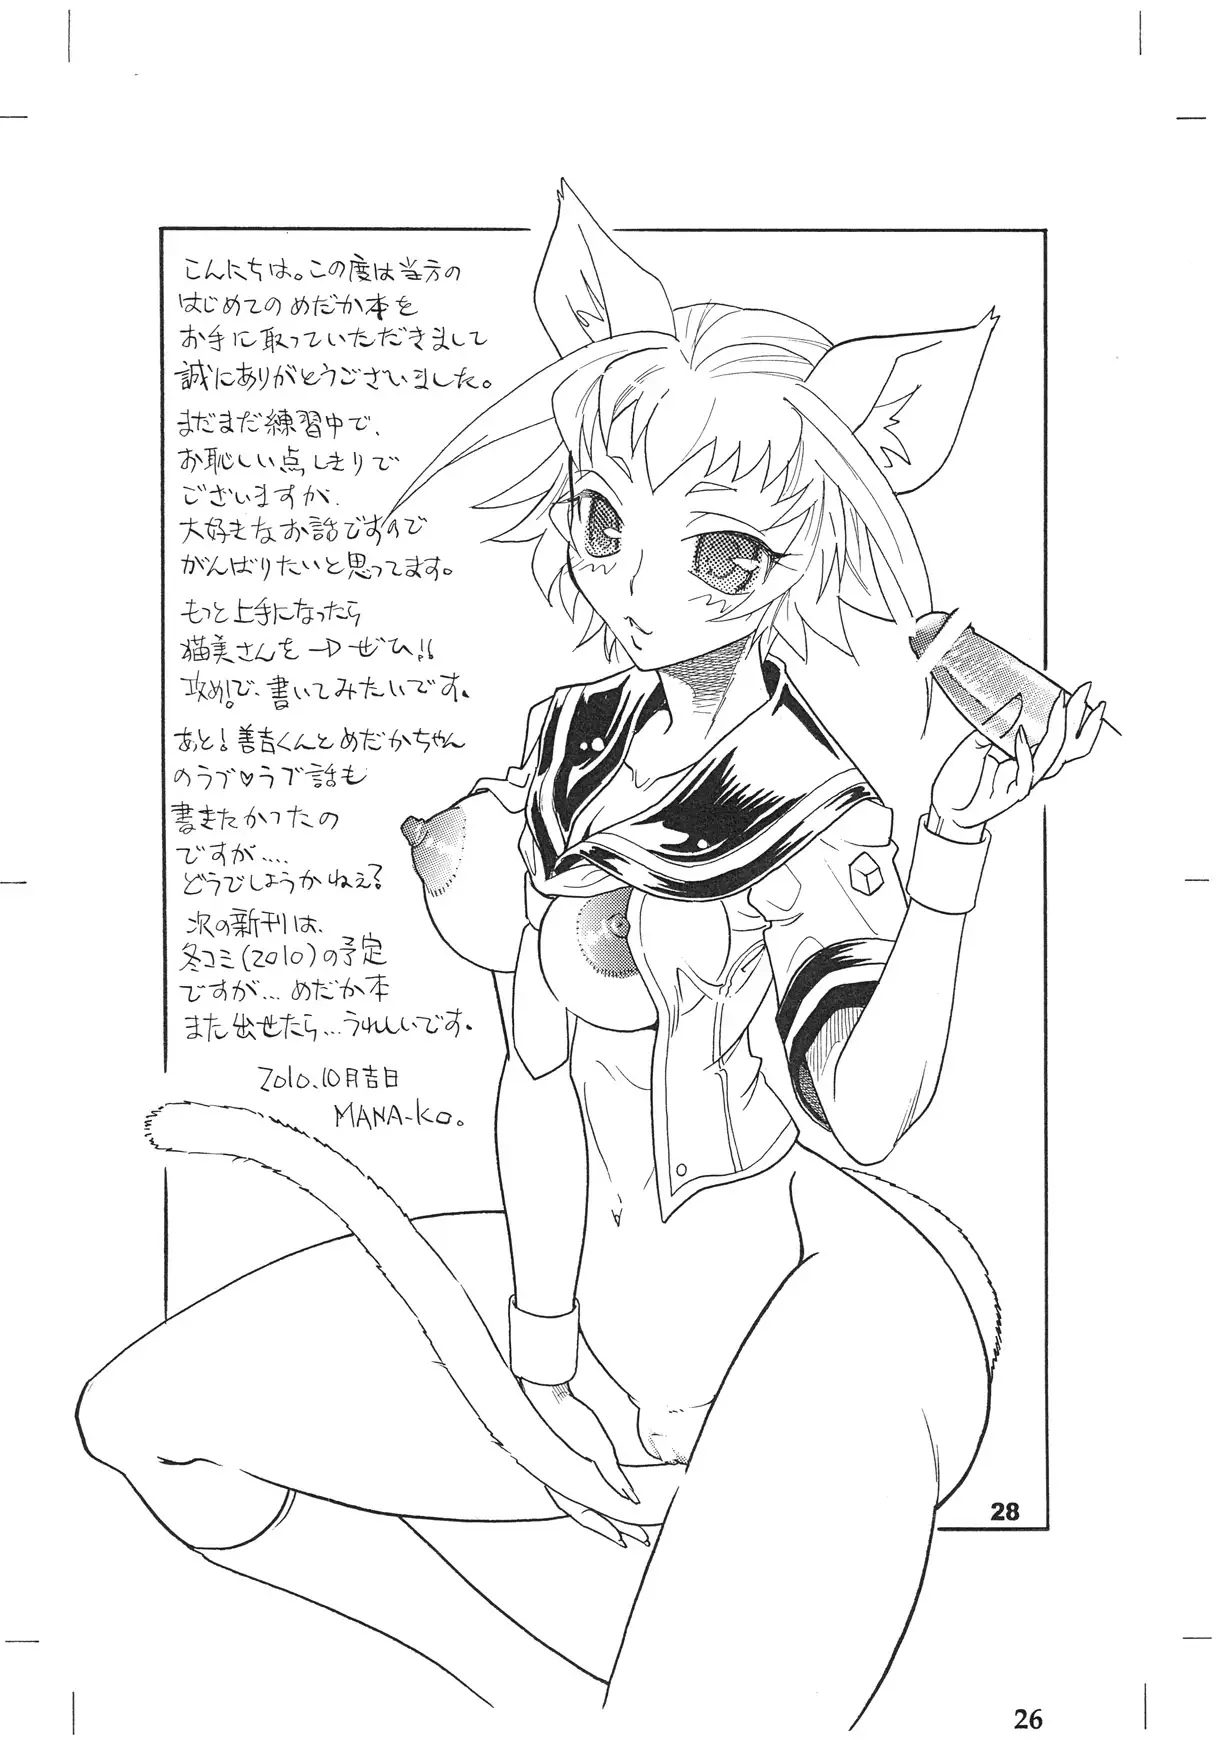 こんにちは。この度は当方の
はじめてのめだか本を
お手に取っていただきまして
誠にありがとうございました。
まだまだ練習中で、
お恥しい点しきりで
ございますが、
大好きなお話ですので
がんばりたいと思ってます。
もっと上手になったら
猫美さんを→ぜひ!!
攻め!で、書いてみたいです。
あと!善吉くんとめだかちゃん
のラブ♡ラブ話も
書きたかったの
ですが....
どうでしょうかねぇ?
次の新刊は、
冬コミ(2010)の予定
ですが...めだか本
また出せたら...うれしいです。
2010.10月吉日
MANA-KO。
28
26